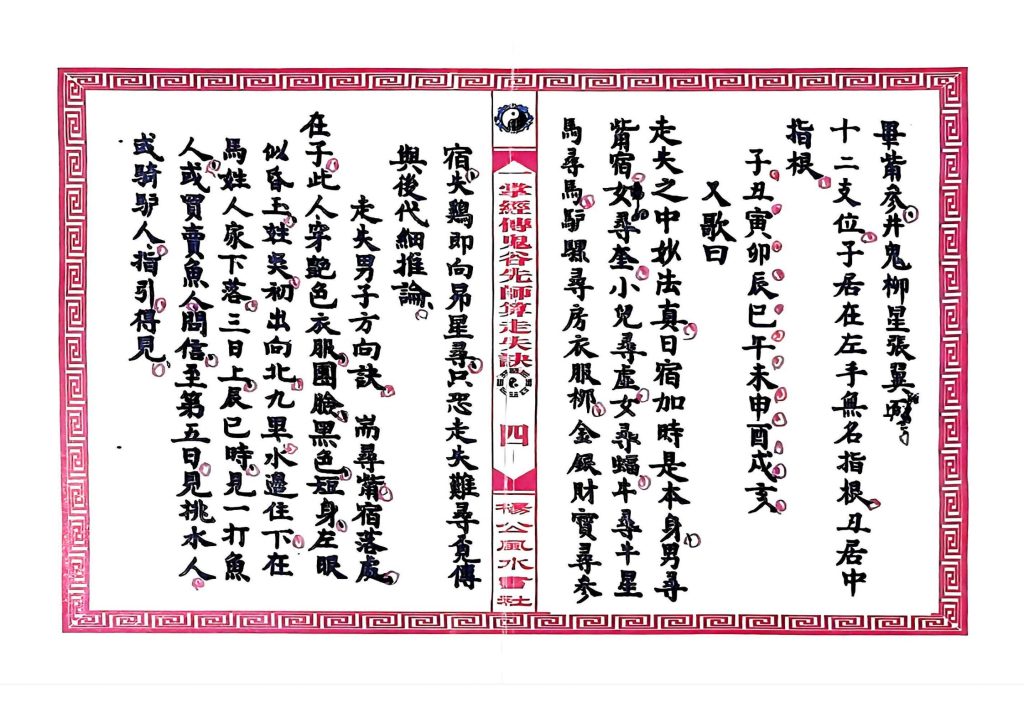 畢觜参井鬼柳星張翼
十二支位子居在左手無名指根丑居中
指根
子丑寅卯辰巳午未申酉戍亥
又歌曰
走失之中妙法真日宿加時是本身男尋
觜宿女尋奎小兒尋虛女尋蝠牛尋牛星
馬尋馬驴騾尋房衣服柳金銀財寳尋参
一掌經傳鬼谷先師算走失訣
四
楊公風水書社
宿失鷄即向昴星尋只恐走失難尋覓傳
與後代細推論
走失男子方向訣 耑尋觜宿落處
在子此人穿艷色衣服團臉黑色短身左眼
似昏王姓吳初出向北九里水邊住下在
馬姓人家下落三日上辰巳時見一打魚
人或買賣魚人問信至第五日見挑水人
或騎驴人指引得見